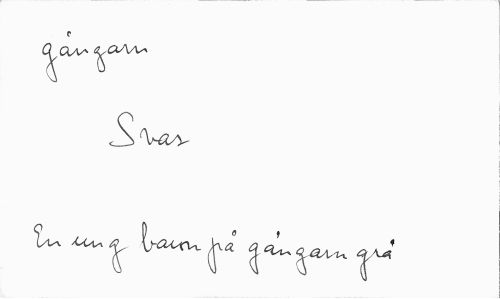 gångarn
Svas
En ung baron på gångarn grå